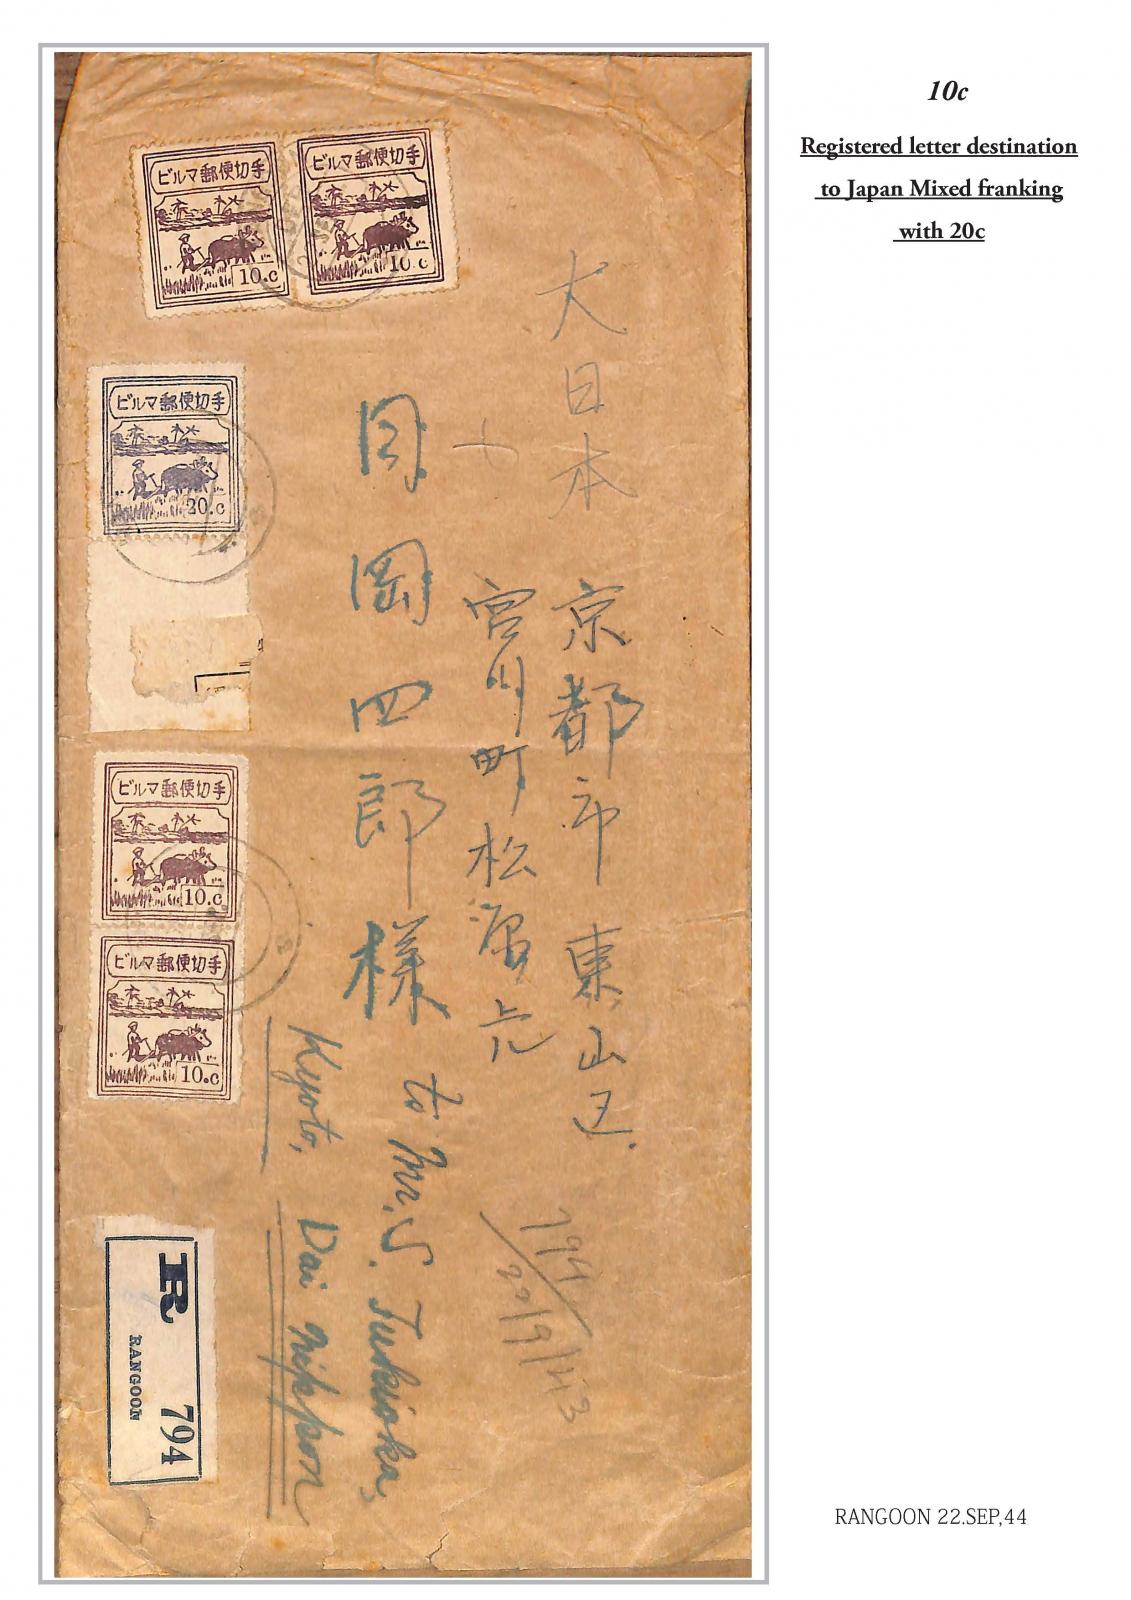 10c
Registered letter destination
to Japan Mixed franking
with 20c
ビルマ郵便切手
10.c
ビルマ郵便切手
10 c
ビルマ郵便切手
20.c
ビルマ郵便切手
10.c
ビルマ郵便切手
10.c
大日本
京都市東山区
宮川町松原
月岡四郎様
to Mr. S. Tukioka,
Kyoto, Dai Nippon
794
R
RANGOON
794
RANGOON 22.SEP,44